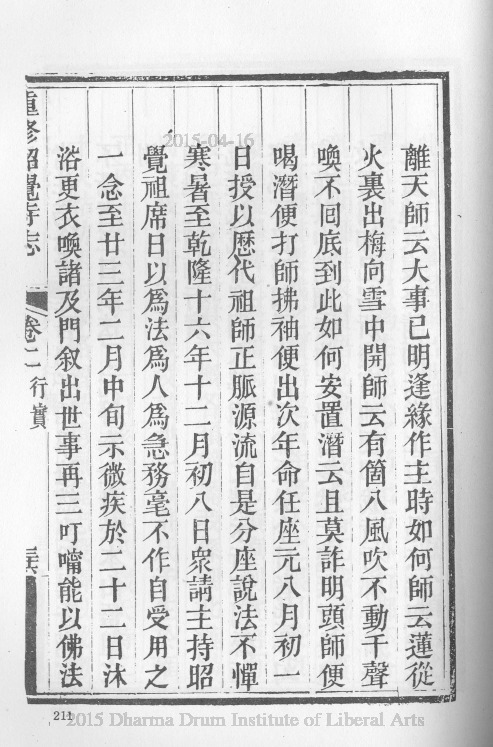 離天師云大事已明逢緣作主時如何師云蓮從
火裏出梅向雪中開師云有箇八風吹不動千聲
喚不囘底到此如何安置潛云且莫詐明頭師便
喝潛便打師拂袖便出次年命任座元八月初一
日授以歷代祖師正脈源流自是分座說法不憚
寒暑至乾隆十六年十二月初八日衆請主持昭
覺祖席日以爲法爲人爲急務毫不作自受用之
一念至廿三年二月中旬示微疾於二十二日沐
浴更衣喚諸及門叙出世事再三叮嚀能以佛法
重修昭覺寺志
卷二
行實
2015-04-16
211
2015 Dharma Drum Institute of Liberal Arts